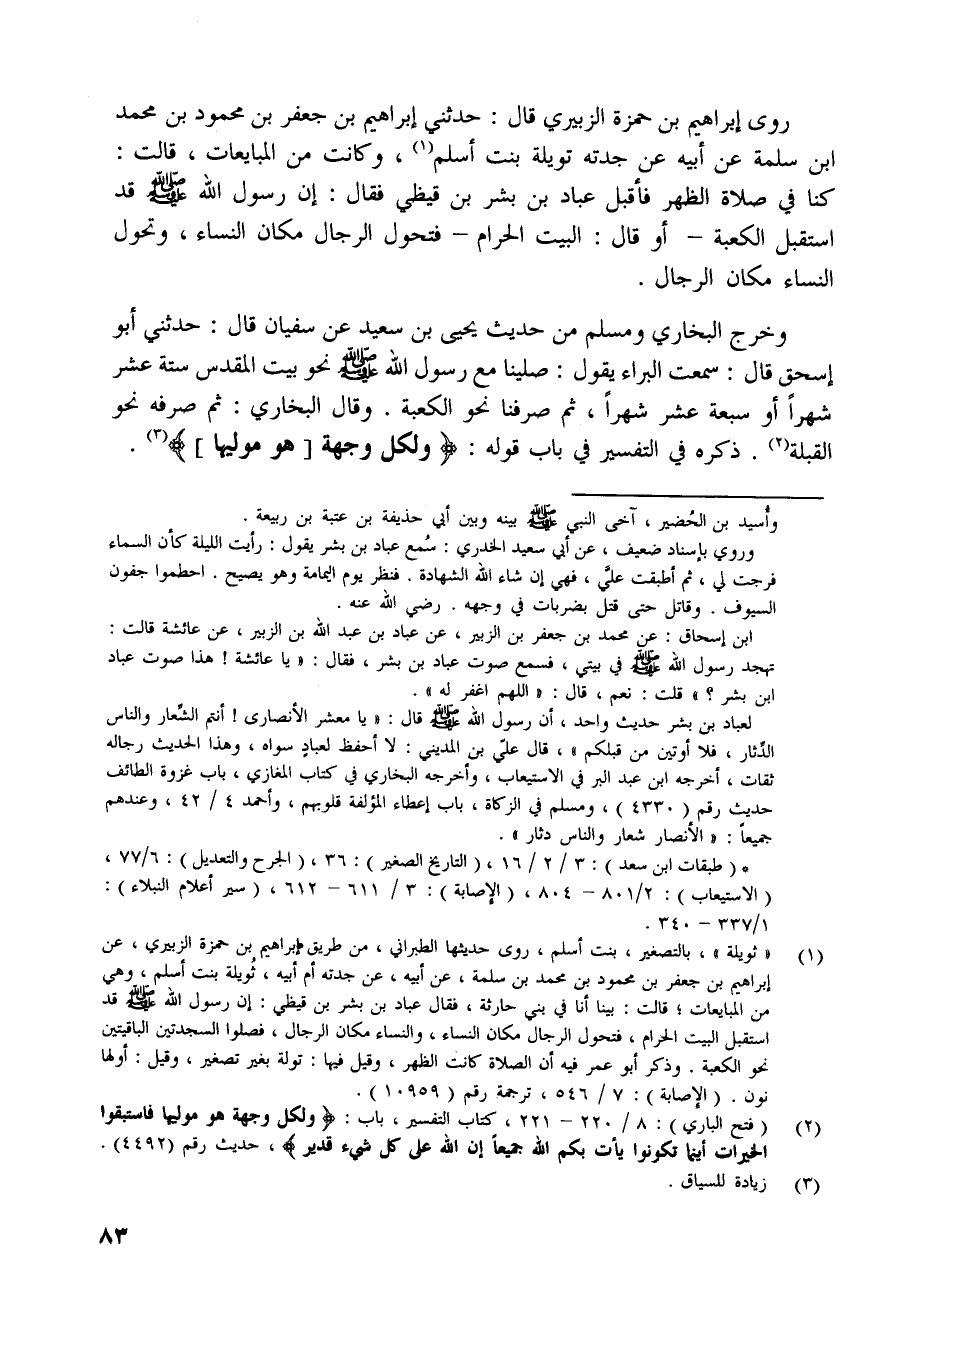 روى إبراهيم بن حمزة الزبيري قال : حدثني إبراهيم بن جعفر بن محمود بن محمد
ابن سلمة عن أبيه عن جدته تويلة بنت أسلم(١) ، وكانت من المبايعات ، قالت :
كنا في صلاة الظهر فأقبل عباد بن بشر بن قيظي فقال : إن رسول الله ﷺ قد
استقبل الكعبة – أو قال : البيت الحرام – فتحول الرجال مكان النساء ، وتحول
النساء مكان الرجال .
وخرج البخاري ومسلم من حديث يحيى بن سعيد عن سفيان قال : حدثني أبو
إسحق قال : سمعت البراء يقول : صلينا مع رسول الله ﷺ نحو بيت المقدس ستة عشر
شهراً أو سبعة عشر شهراً ، ثم صرفنا نحو الكعبة . وقال البخاري : ثم صرفه نحو
القبلة(٢) . ذكره في التفسير في باب قوله : ﴿ ولكل وجهة [ هو موليها ] ﴾(٣) .
وأُسيد بن الحُضير ، آخى النبي ﷺ بينه وبين أبي حذيفة بن عتبة بن ربيعة .
وروي بإسناد ضعيف ، عن أبي سعيد الخدري : سُمع عباد بن بشر يقول : رأيت الليلة كأن السماء
فرجت لي ، ثم أطبقت عليَّ ، فهي إن شاء الله الشهادة . فنظر يوم اليمامة وهو يصيح . احطموا جفون
السيوف . وقاتل حتى قتل بضربات في وجهه . رضي الله عنه .
ابن إسحاق : عن محمد بن جعفر بن الزبير ، عن عباد بن عبد الله بن الزبير ، عن عائشة قالت :
تهجد رسول الله ﷺ في بيتي ، فسمع صوت عباد بن بشر ، فقال : « يا عائشة ! هذا صوت عباد
ابن بشر ؟ » قلت : نعم ، قال : « اللهم اغفر له » .
لعباد بن بشر حديث واحد ، أن رسول الله ﷺ قال : « يا معشر الأنصارى ! أنتم الشِّعار والناس
الدِّثار ، فلا أوتين من قبلكم » ، قال عليّ بن المديني : لا أحفظ لعبادٍ سواه ، وهذا الحديث رجاله
ثقات ، أخرجه ابن عبد البر في الاستيعاب ، وأخرجه البخاري في كتاب المغازي ، باب غزوة الطائف
حديث رقم ( ٤٣٣٠ ) ، ومسلم في الزكاة ، باب إعطاء المؤلفة قلوبهم ، وأحمد ٤ / ٤٢ ، وعندهم
جميعاً : « الأنصار شعار والناس دثار » .
* ( طبقات ابن سعد ) : ٣ / ٢ / ١٦ ، ( التاريخ الصغير ) : ٣٦ ، ( الجرح والتعديل ) : ٧٧/٦ ،
( الاستيعاب ) : ٨٠١/٢ – ٨٠٤ ، ( الإصابة ) : ٣ / ٦١١ – ٦١٢ ، ( سير أعلام النبلاء ) :
٣٣٧/١ – ٣٤٠ .
(١) « ثويلة » ، بالتصغير ، بنت أسلم ، روى حديثها الطبراني ، من طريق إبراهيم بن حمزة الزبيري ، عن
إبراهيم بن جعفر بن محمود بن محمد بن سلمة ، عن أبيه ، عن جدته أم أبيه ، ثُويلة بنت أسلم ، وهي
من المبايعات ؛ قالت : بينا أنا في بني حارثة ، فقال عباد بن بشر بن قيظي : إن رسول الله ﷺ قد
استقبل البيت الحرام ، فتحول الرجال مكان النساء ، والنساء مكان الرجال ، فصلوا السجدتين الباقيتين
نحو الكعبة . وذكر أبو عمر فيه أن الصلاة كانت الظهر ، وقيل فيها : تولة بغير تصغير ، وقيل : أولها
نون . ( الإصابة ) : ٧ / ٥٤٦ ، ترجمة رقم ( ١٠٩٥٩ ) .
(٢) ( فتح الباري ) : ٨ / ٢٢٠ – ٢٢١ ، كتاب التفسير ، باب : ﴿ ولكل وجهة هو موليها فاستبقوا
الخيرات أينما تكونوا يأت بكم الله جميعاً إن الله على كل شيء قدير ﴾ ، حديث رقم (٤٤٩٢) .
(٣) زيادة للسياق .
٨٣